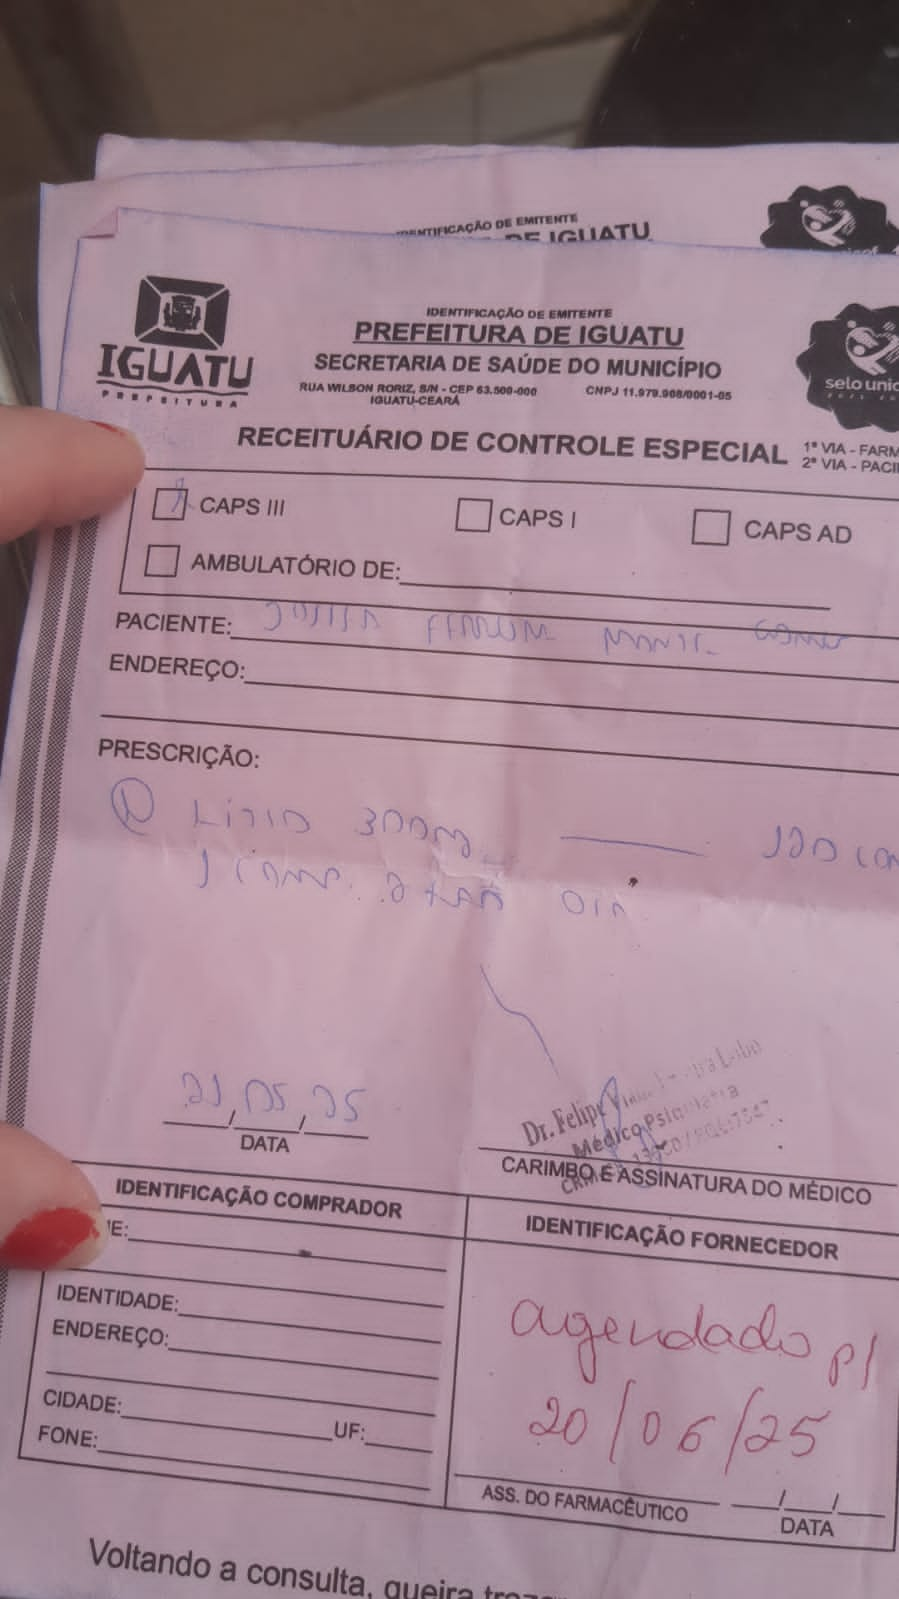 IDENTIFICAÇÃO DE EMITENTE
DE IGUATU
IGUATU
PREFEITURA
IDENTIFICAÇÃO DE EMITENTE
PREFEITURA DE IGUATU
SECRETARIA DE SAÚDE DO MUNICÍPIO
RUA WILSON RORIZ, S/N - CEP 63.500-000 CNPJ 11.979.908/0001-05
IGUATU-CEARÁ
selo unic
RECEITUÁRIO DE CONTROLE ESPECIAL
1ª VIA - FARM
2ª VIA - PACI
CAPS III
CAPS I
CAPS AD
AMBULATÓRIO DE:
PACIENTE:
ENDEREÇO:
PRESCRIÇÃO:
Lítio 300mg 120 co
1 comp. ao dia
21, 05, 25
DATA
Dr. Felipe Lobo
Médico Psiquiatra
CARIMBO E ASSINATURA DO MÉDICO
IDENTIFICAÇÃO COMPRADOR
E:
IDENTIDADE:
ENDEREÇO:
CIDADE: UF:
FONE:
IDENTIFICAÇÃO FORNECEDOR
agendado p/
20/06/25
ASS. DO FARMACÊUTICO
DATA
Voltando a consulta, queira traze